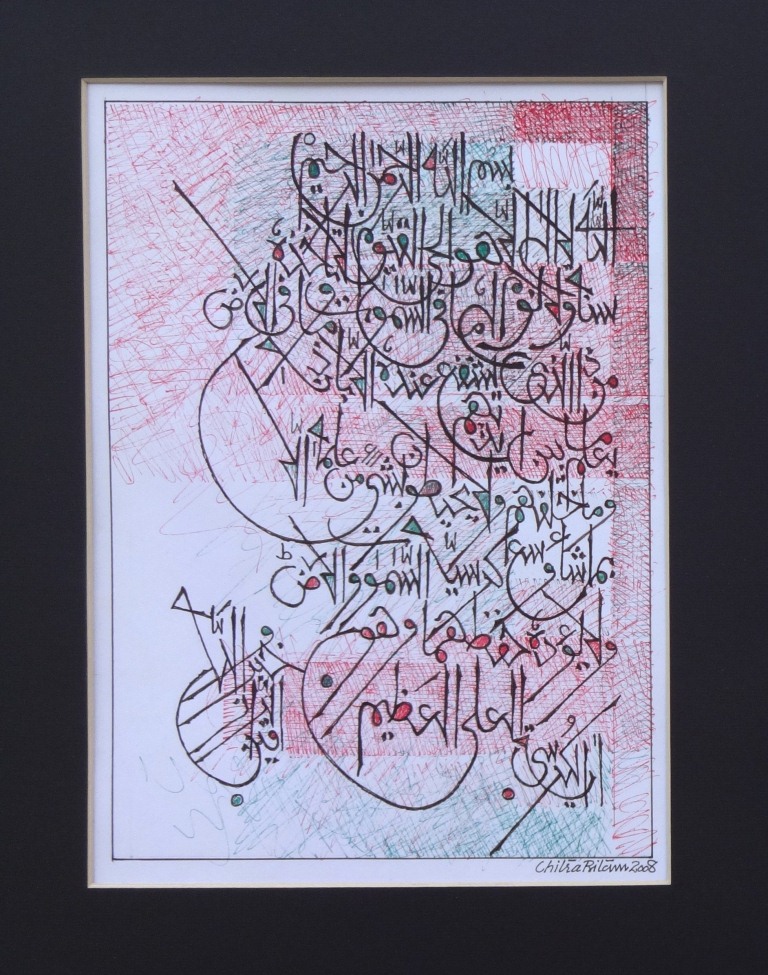 بسم الله الرحمن الرحيم
الله لا إله إلا هو الحي القيوم لا تأخذه
سنة ولا نوم له ما في السموت وما في الأرض
من ذا الذي يشفع عنده إلا بإذنه
يعلم ما بين أيديهم
وما خلفهم ولا يحيطون بشيء من علمه إلا
بما شاء وسع كرسيه السموت والأرض
ولا يؤده حفظهما وهو
العلي العظيم
آية الكرسي
Chitra Pritam 2008